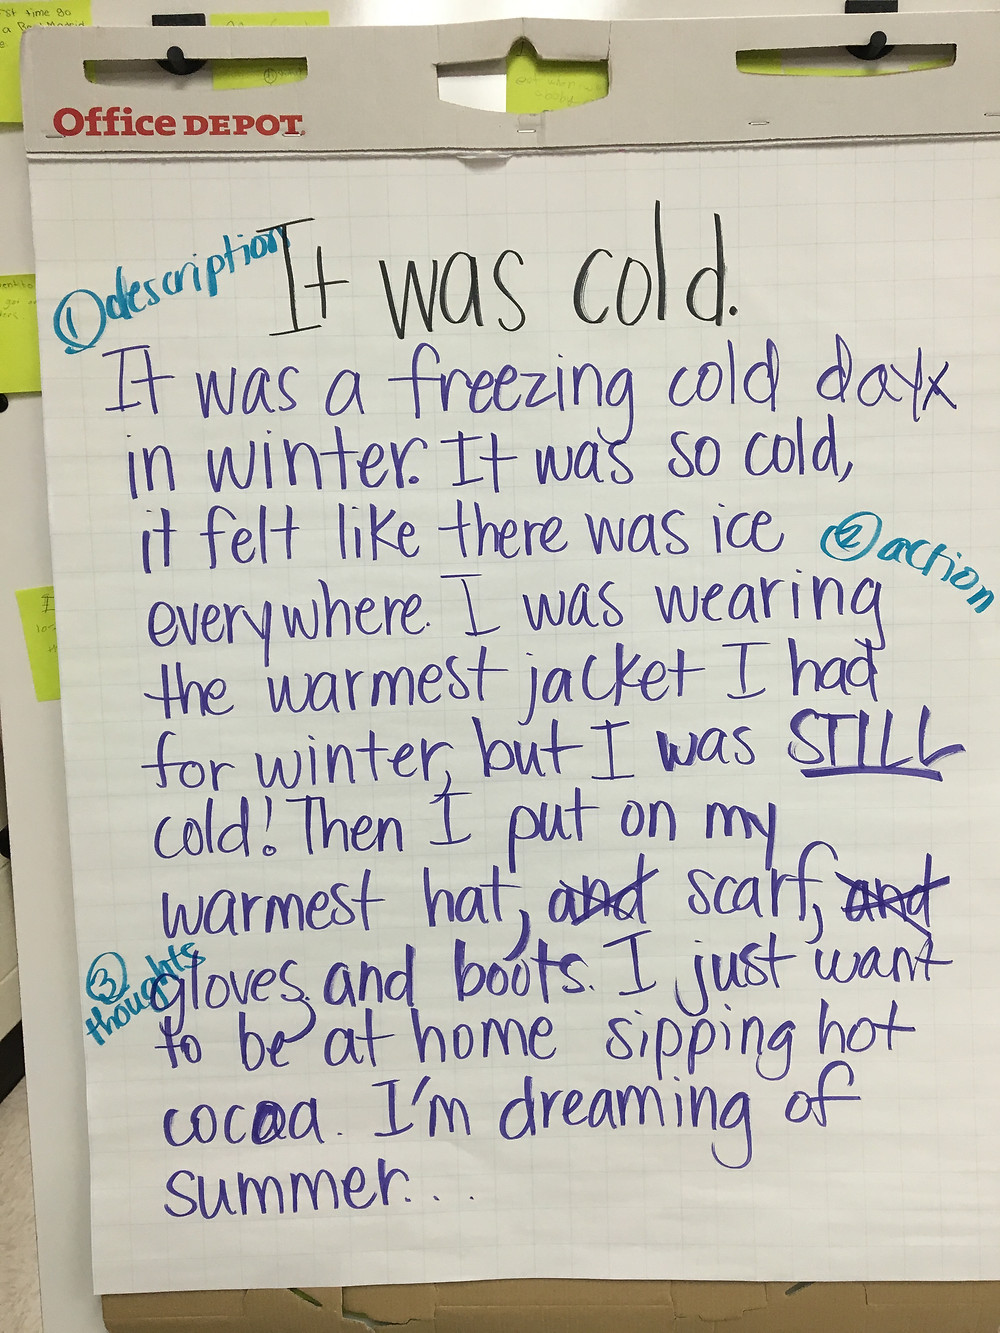 st time go
Office DEPOT
① description
It was cold.
It was a freezing cold dayx
in winter. It was so cold,
it felt like there was ice
② action
everywhere. I was wearing
the warmest jacket I had
for winter, but I was STILL
cold! Then I put on my
warmest hat, and scarf, and
③ thoughts
gloves, and boots. I just want
to be at home sipping hot
cocoa. I'm dreaming of
summer...